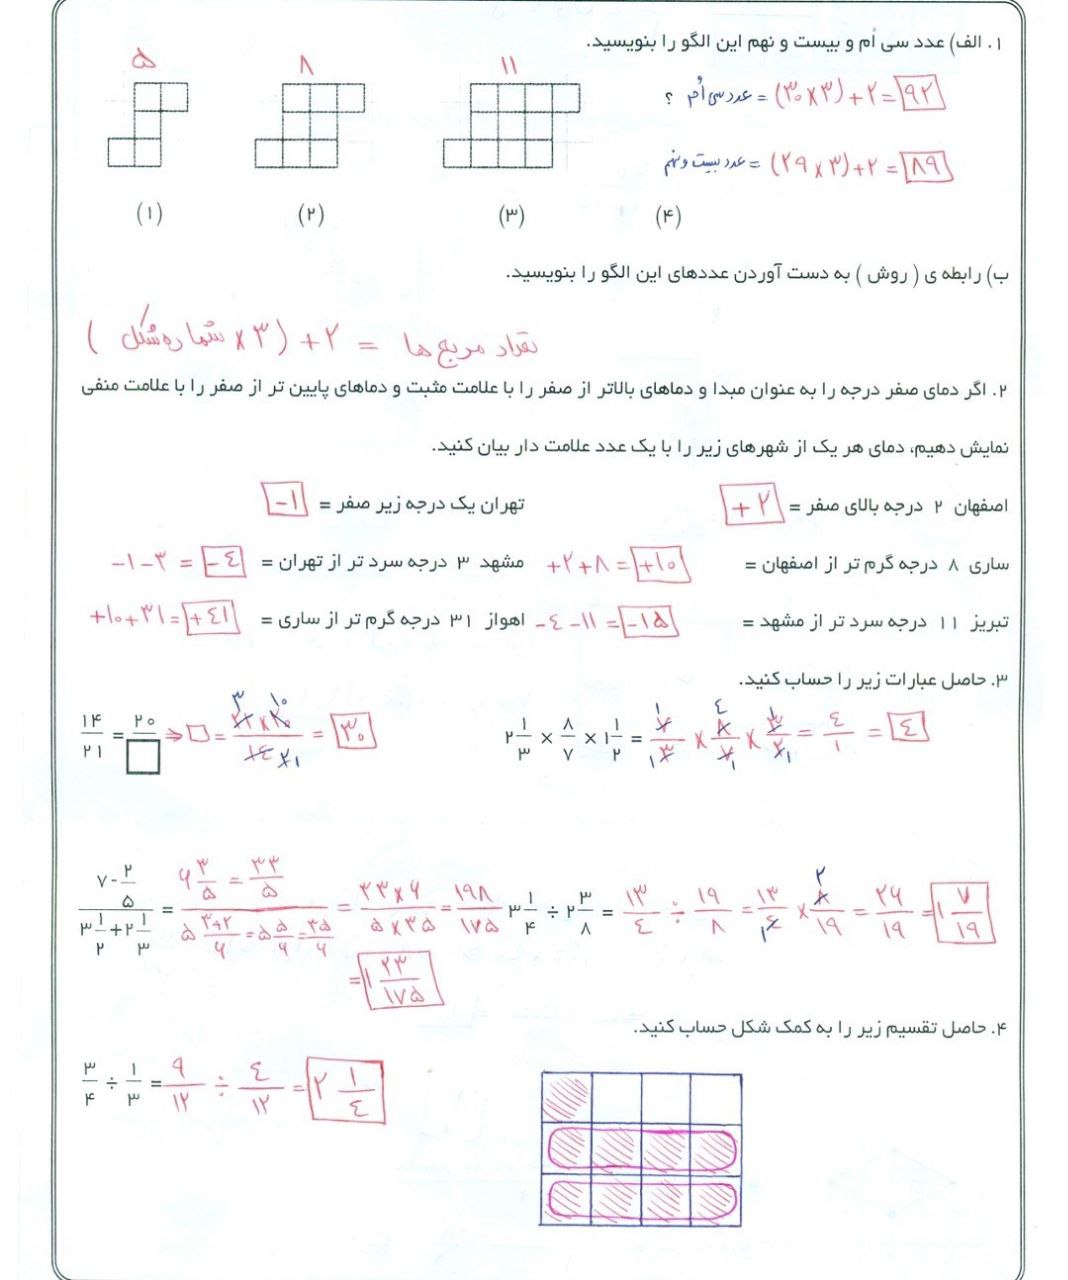 ۱. الف) عدد سی اُم و بیست و نهم این الگو را بنویسید.
۵ ۸ ۱۱
؟ عدد سی اُم = (۳۰×۳)+۲ = ۹۲
عدد بیست و نهم = (۲۹×۳)+۲ = ۸۹
(۱) (۲) (۳) (۴)
ب) رابطه ی ( روش ) به دست آوردن عددهای این الگو را بنویسید.
تعداد مربع ها = ۲+ (۳× شماره شکل )
۲. اگر دمای صفر درجه را به عنوان مبدا و دماهای بالاتر از صفر را با علامت مثبت و دماهای پایین تر از صفر را با علامت منفی
نمایش دهیم، دمای هر یک از شهرهای زیر را با یک عدد علامت دار بیان کنید.
اصفهان ۲ درجه بالای صفر = +۲ تهران یک درجه زیر صفر = -۱
ساری ۸ درجه گرم تر از اصفهان = +۲+۸ = +۱۰ مشهد ۳ درجه سرد تر از تهران = -۱-۳ = -٤
تبریز ۱۱ درجه سرد تر از مشهد = -٤-۱۱ = -۱۵ اهواز ۳۱ درجه گرم تر از ساری = +۱۰+۳۱ = +٤۱
۳. حاصل عبارات زیر را حساب کنید.
۱۴/۲۱ = ۲۰/□ ⇒ □ = ۲۱×۲۰/۱٤ = ۳۰ ۳ ۱۰ ۲ ۱
۲ ۱/۳ × ۸/۷ × ۱ ۱/۲ = ۷/۳ × ۸/۷ × ۳/۲ = ٤/۱ = ٤ ۱ ٤ ۱ ۱ ۱ ۱
۷-۲/۵ / ۳ ۱/۲+۲ ۱/۳ = ۶ ۳/۵ = ۳۳/۵ / ۵ ۳+۲/۶ = ۵ ۵/۶ = ۳۵/۶ = ۳۳×۶/۵×۳۵ = ۱۹۸/۱۷۵
= ۱ ۲۳/۱۷۵
۳ ۱/۴ ÷ ۲ ۳/۸ = ۱۳/٤ ÷ ۱۹/۸ = ۱۳/٤ × ۸/۱۹ = ۲۶/۱۹ = ۱ ۷/۱۹ ۲ ۱
۴. حاصل تقسیم زیر را به کمک شکل حساب کنید.
۳/۴ ÷ ۱/۳ = ۹/۱۲ ÷ ٤/۱۲ = ۲ ۱/٤